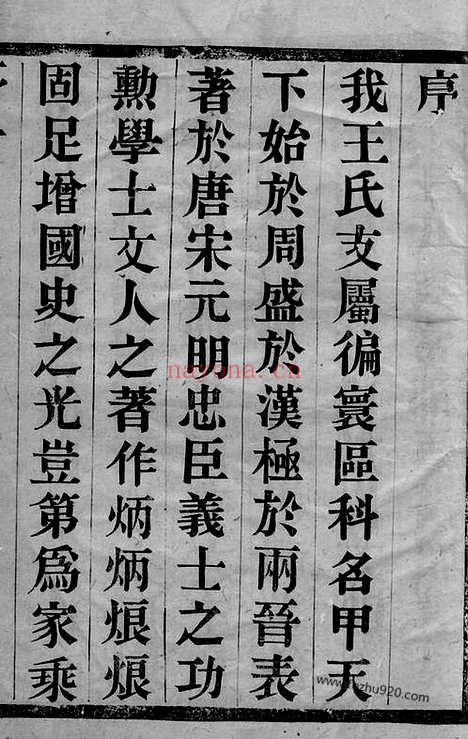 序
我王氏支屬徧寰區科名甲天
下始於周盛於漢極於兩晉表
著於唐宋元明忠臣義士之功
勲學士文人之著作炳炳烺烺
固足增國史之光豈第為家乘
nayona.cn